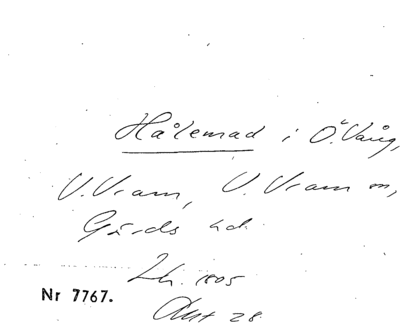 Hålemad i Ö. Vång,
V. Vram, V. Vram sn,
Gärds hd.
1805
Nr 7767.
Akt 28.